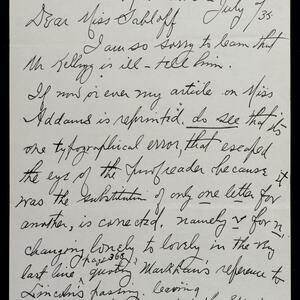 July /35
Dear Miss Sabloff
I am so sorry to learn that
Mr Kellogg is ill - tell him.
If now or ever my article on Miss
Addams is reprinted, do see that its
one typographical error, that escaped
the eye of the proofreader because it
was the substitution of only one letter for
another, is corrected, namely v for n,
changing lonely to lovely in the very
last line, quoting Mark Twain's reference to
Lincoln's passing, leaving